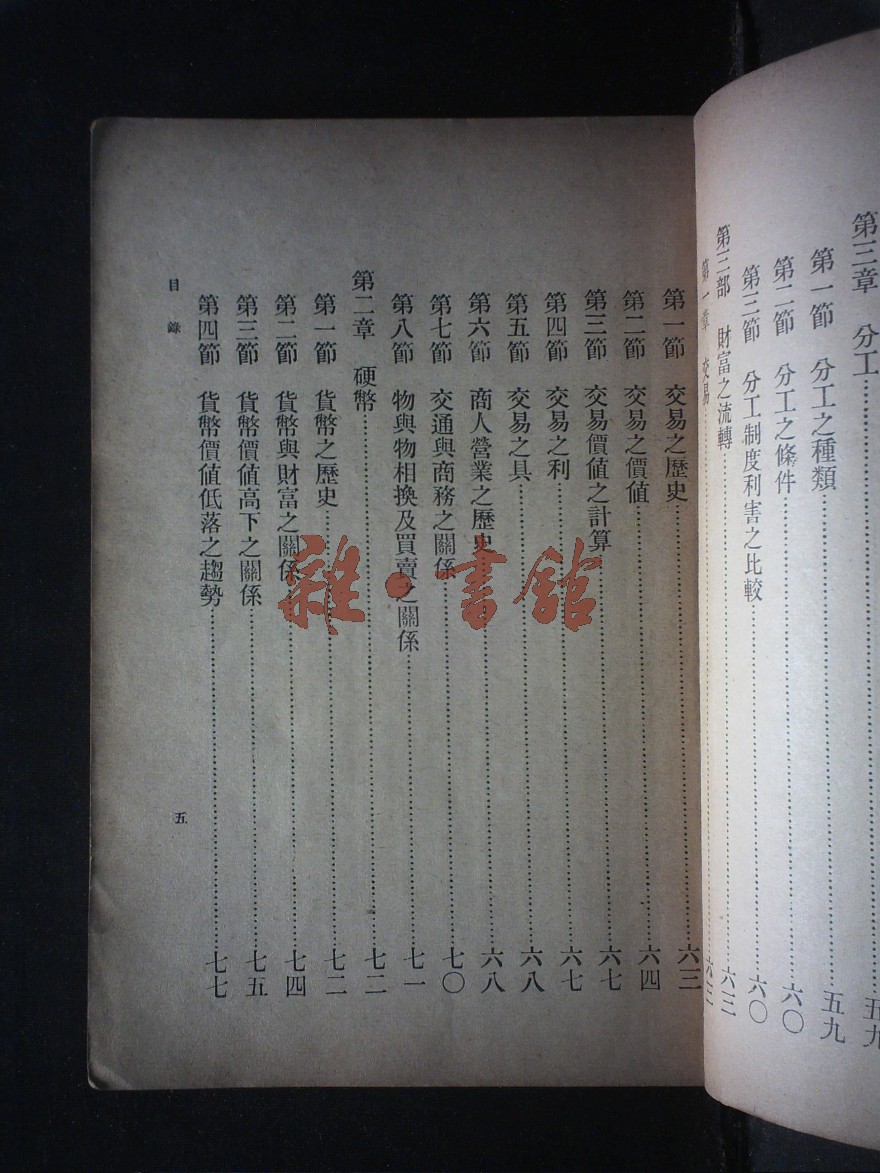 第三章 分工……五九
第一節 分工之種類……五九
第二節 分工之條件……六〇
第三節 分工制度利害之比較……六〇
第三部 財富之流轉……六三
第一章 交易……六三
第一節 交易之歷史……六三
第二節 交易之價值……六四
第三節 交易價值之計算……六七
第四節 交易之利……六七
第五節 交易之具……六八
第六節 商人營業之歷史……六八
第七節 交通與商務之關係……七〇
第八節 物與物相換及買賣之關係……七一
第二章 硬幣……七二
第一節 貨幣之歷史……七二
第二節 貨幣與財富之關係……七四
第三節 貨幣價值高下之關係……七五
第四節 貨幣價值低落之趨勢……七七
目錄
五
雜·書館